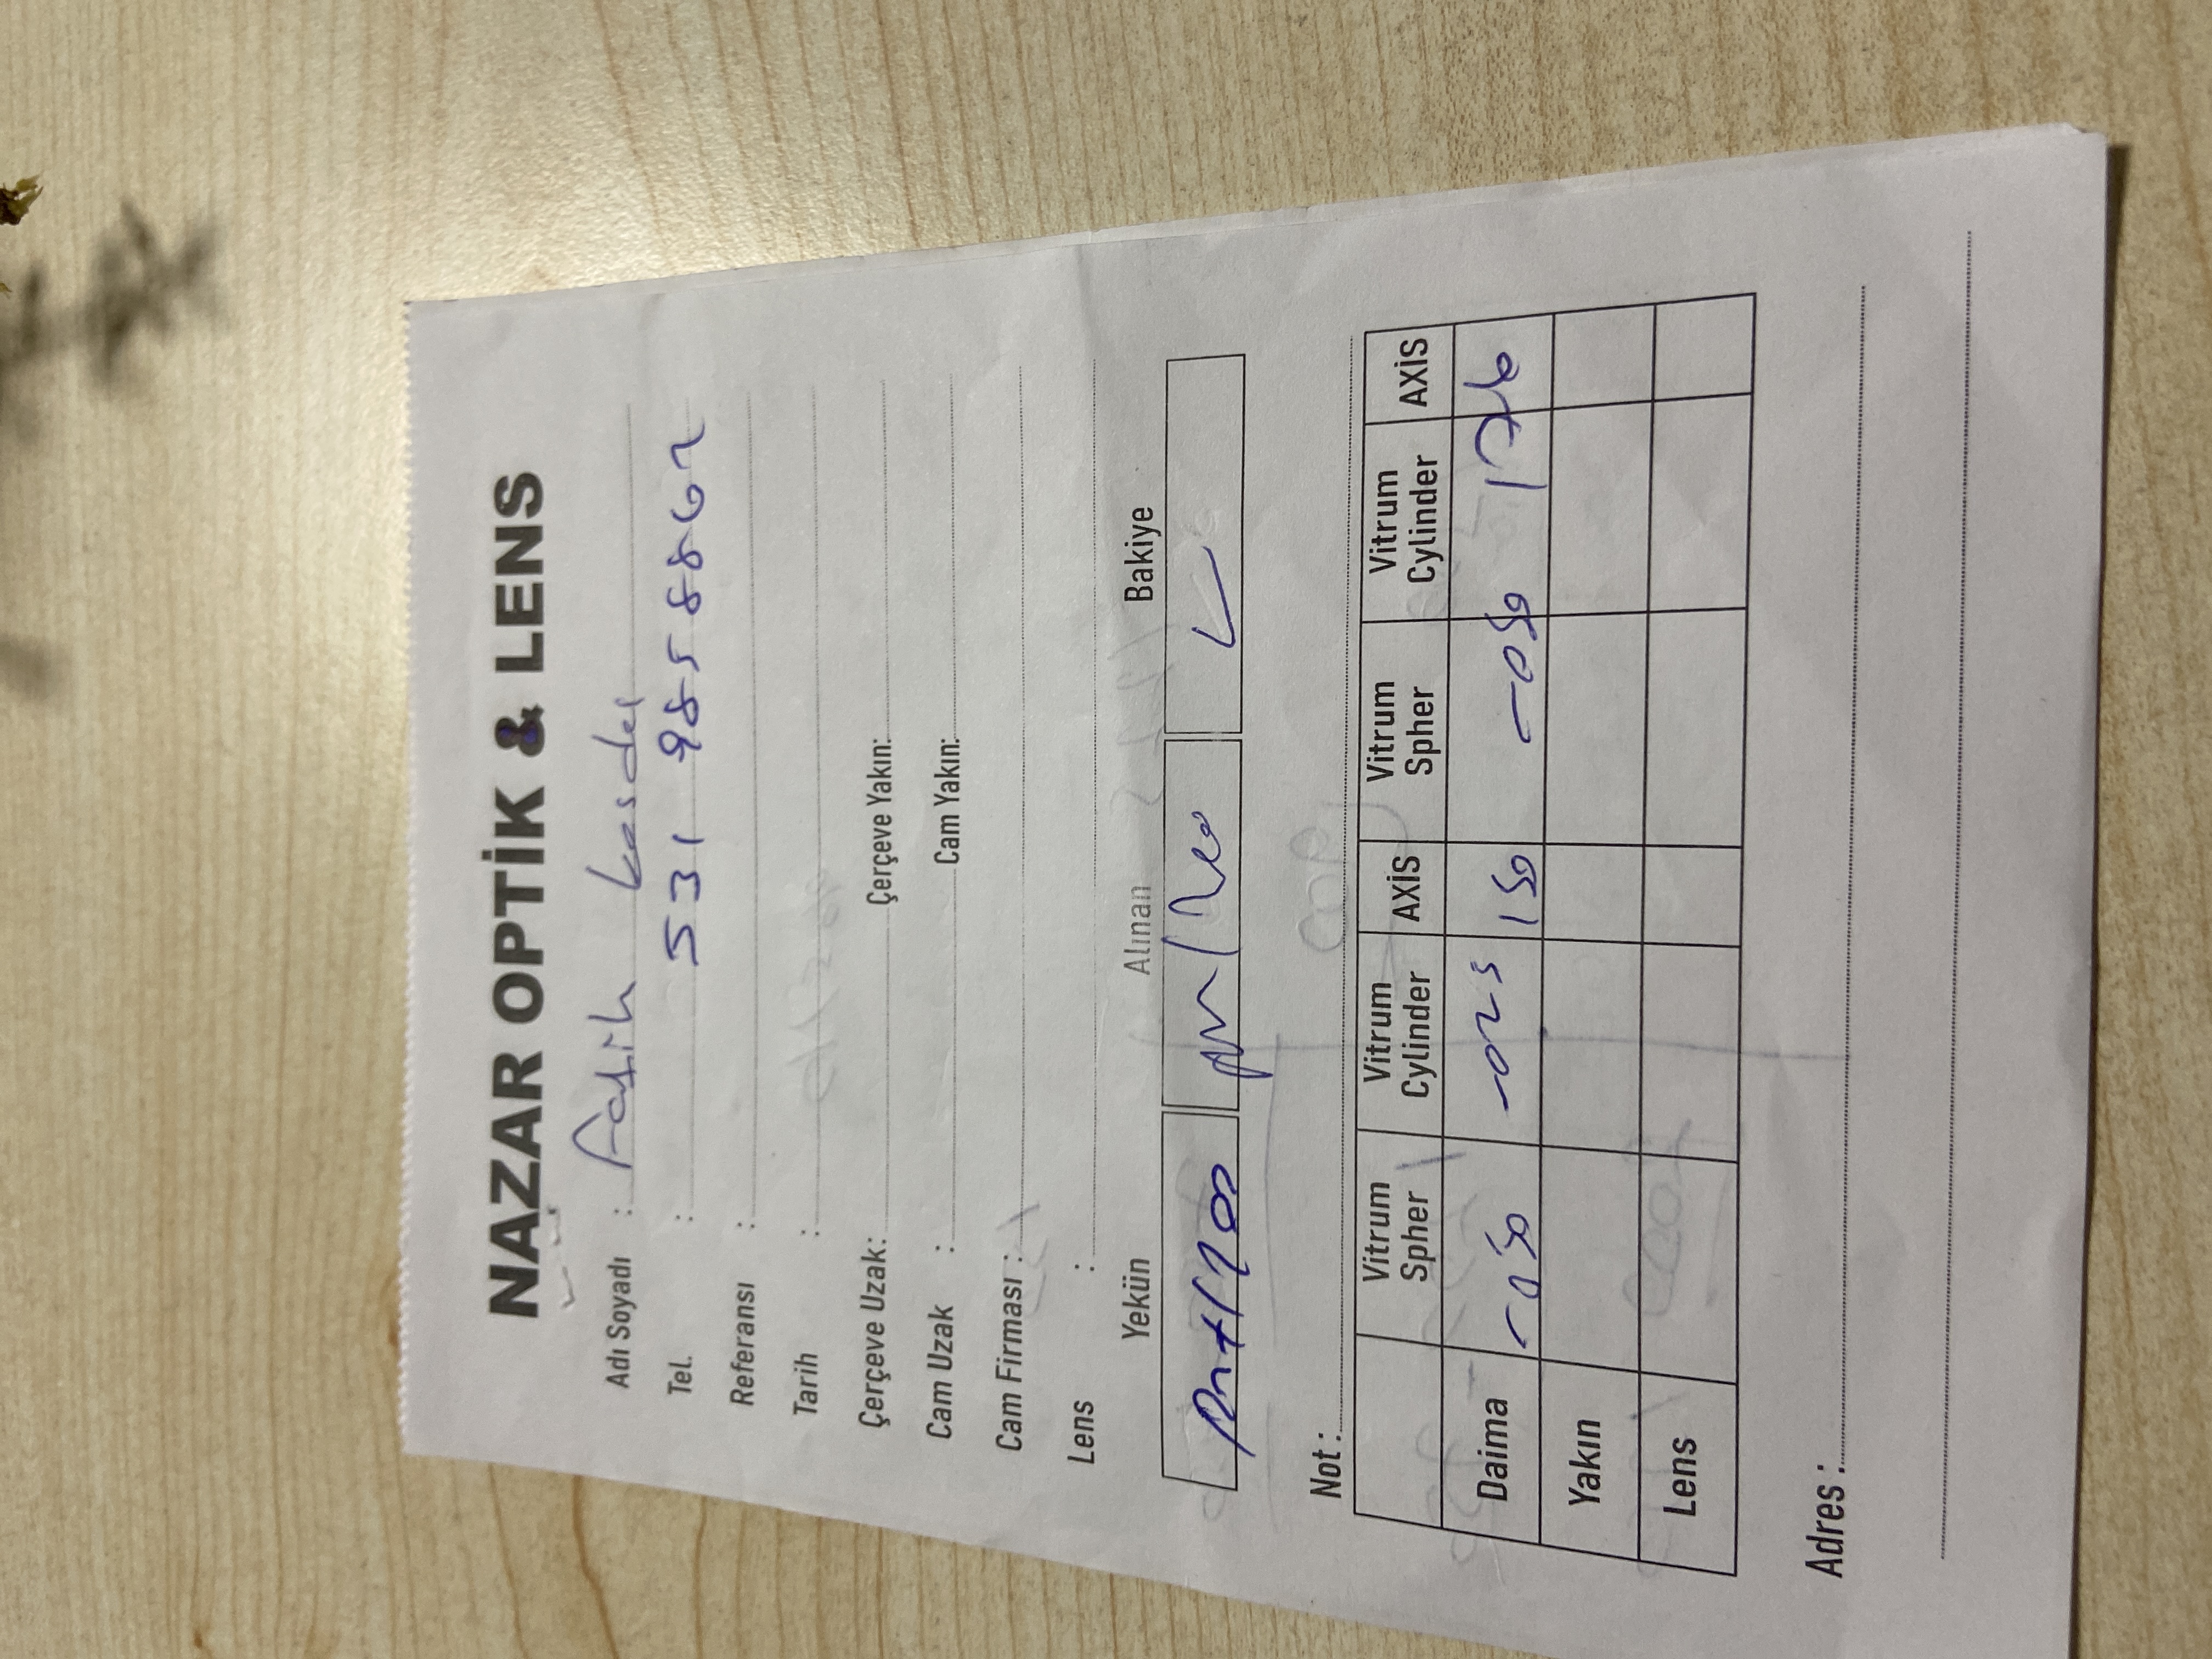 NAZAR OPTİK & LENS
Adı Soyadı : Fatih
Tel. : 531 9858862
Referansı :
Tarih :
Çerçeve Uzak: Çerçeve Yakın:
Cam Uzak : Cam Yakın:
Cam Firması :
Lens :
Yekün Alınan Bakiye
Not :
Vitrum Spher Vitrum Cylinder AXİS Vitrum Spher Vitrum Cylinder AXİS
Daima -050 -025 150 -050
Yakın
Lens
Adres :